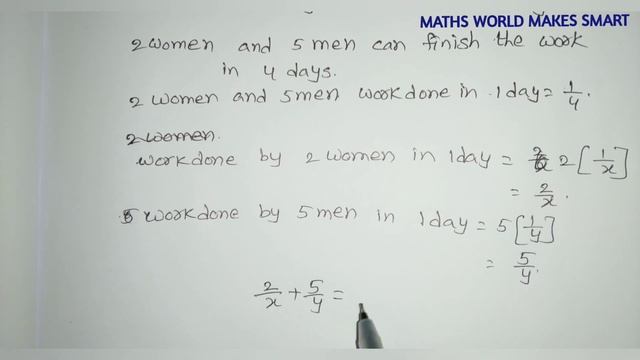 MATHS WORLD MAKES SMART
2women and 5 men can finish the work
in 4 days.
2 women and 5men workdone in 1day = 1/4.
2women.
workdone by 2 women in 1day = 2[1/x]
= 2/x.
workdone by 5men in 1day = 5[1/y]
= 5/y.
2/x + 5/y =